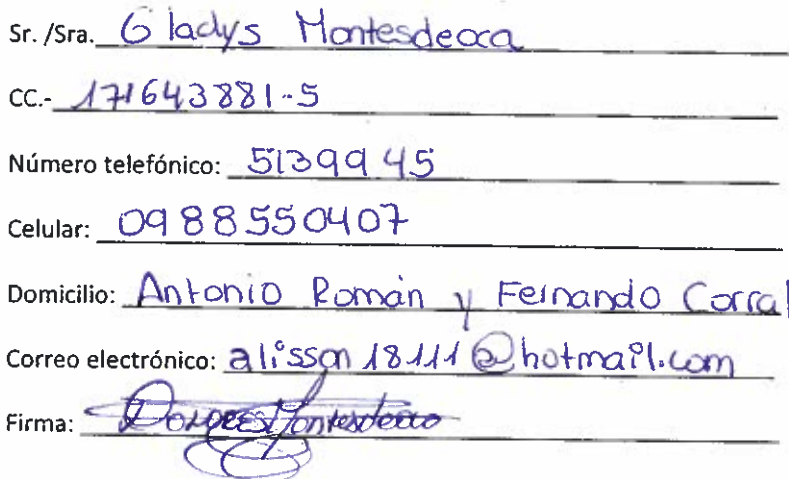 Sr. /Sra. Gladys Montesdeoca
CC.- 171643881-5
Número telefónico: 5139945
Celular: 0988550407
Domicilio: Antonio Román y Fernando Corral
Correo electrónico: alisson18111@hotmail.com
Firma: Montesdeoca